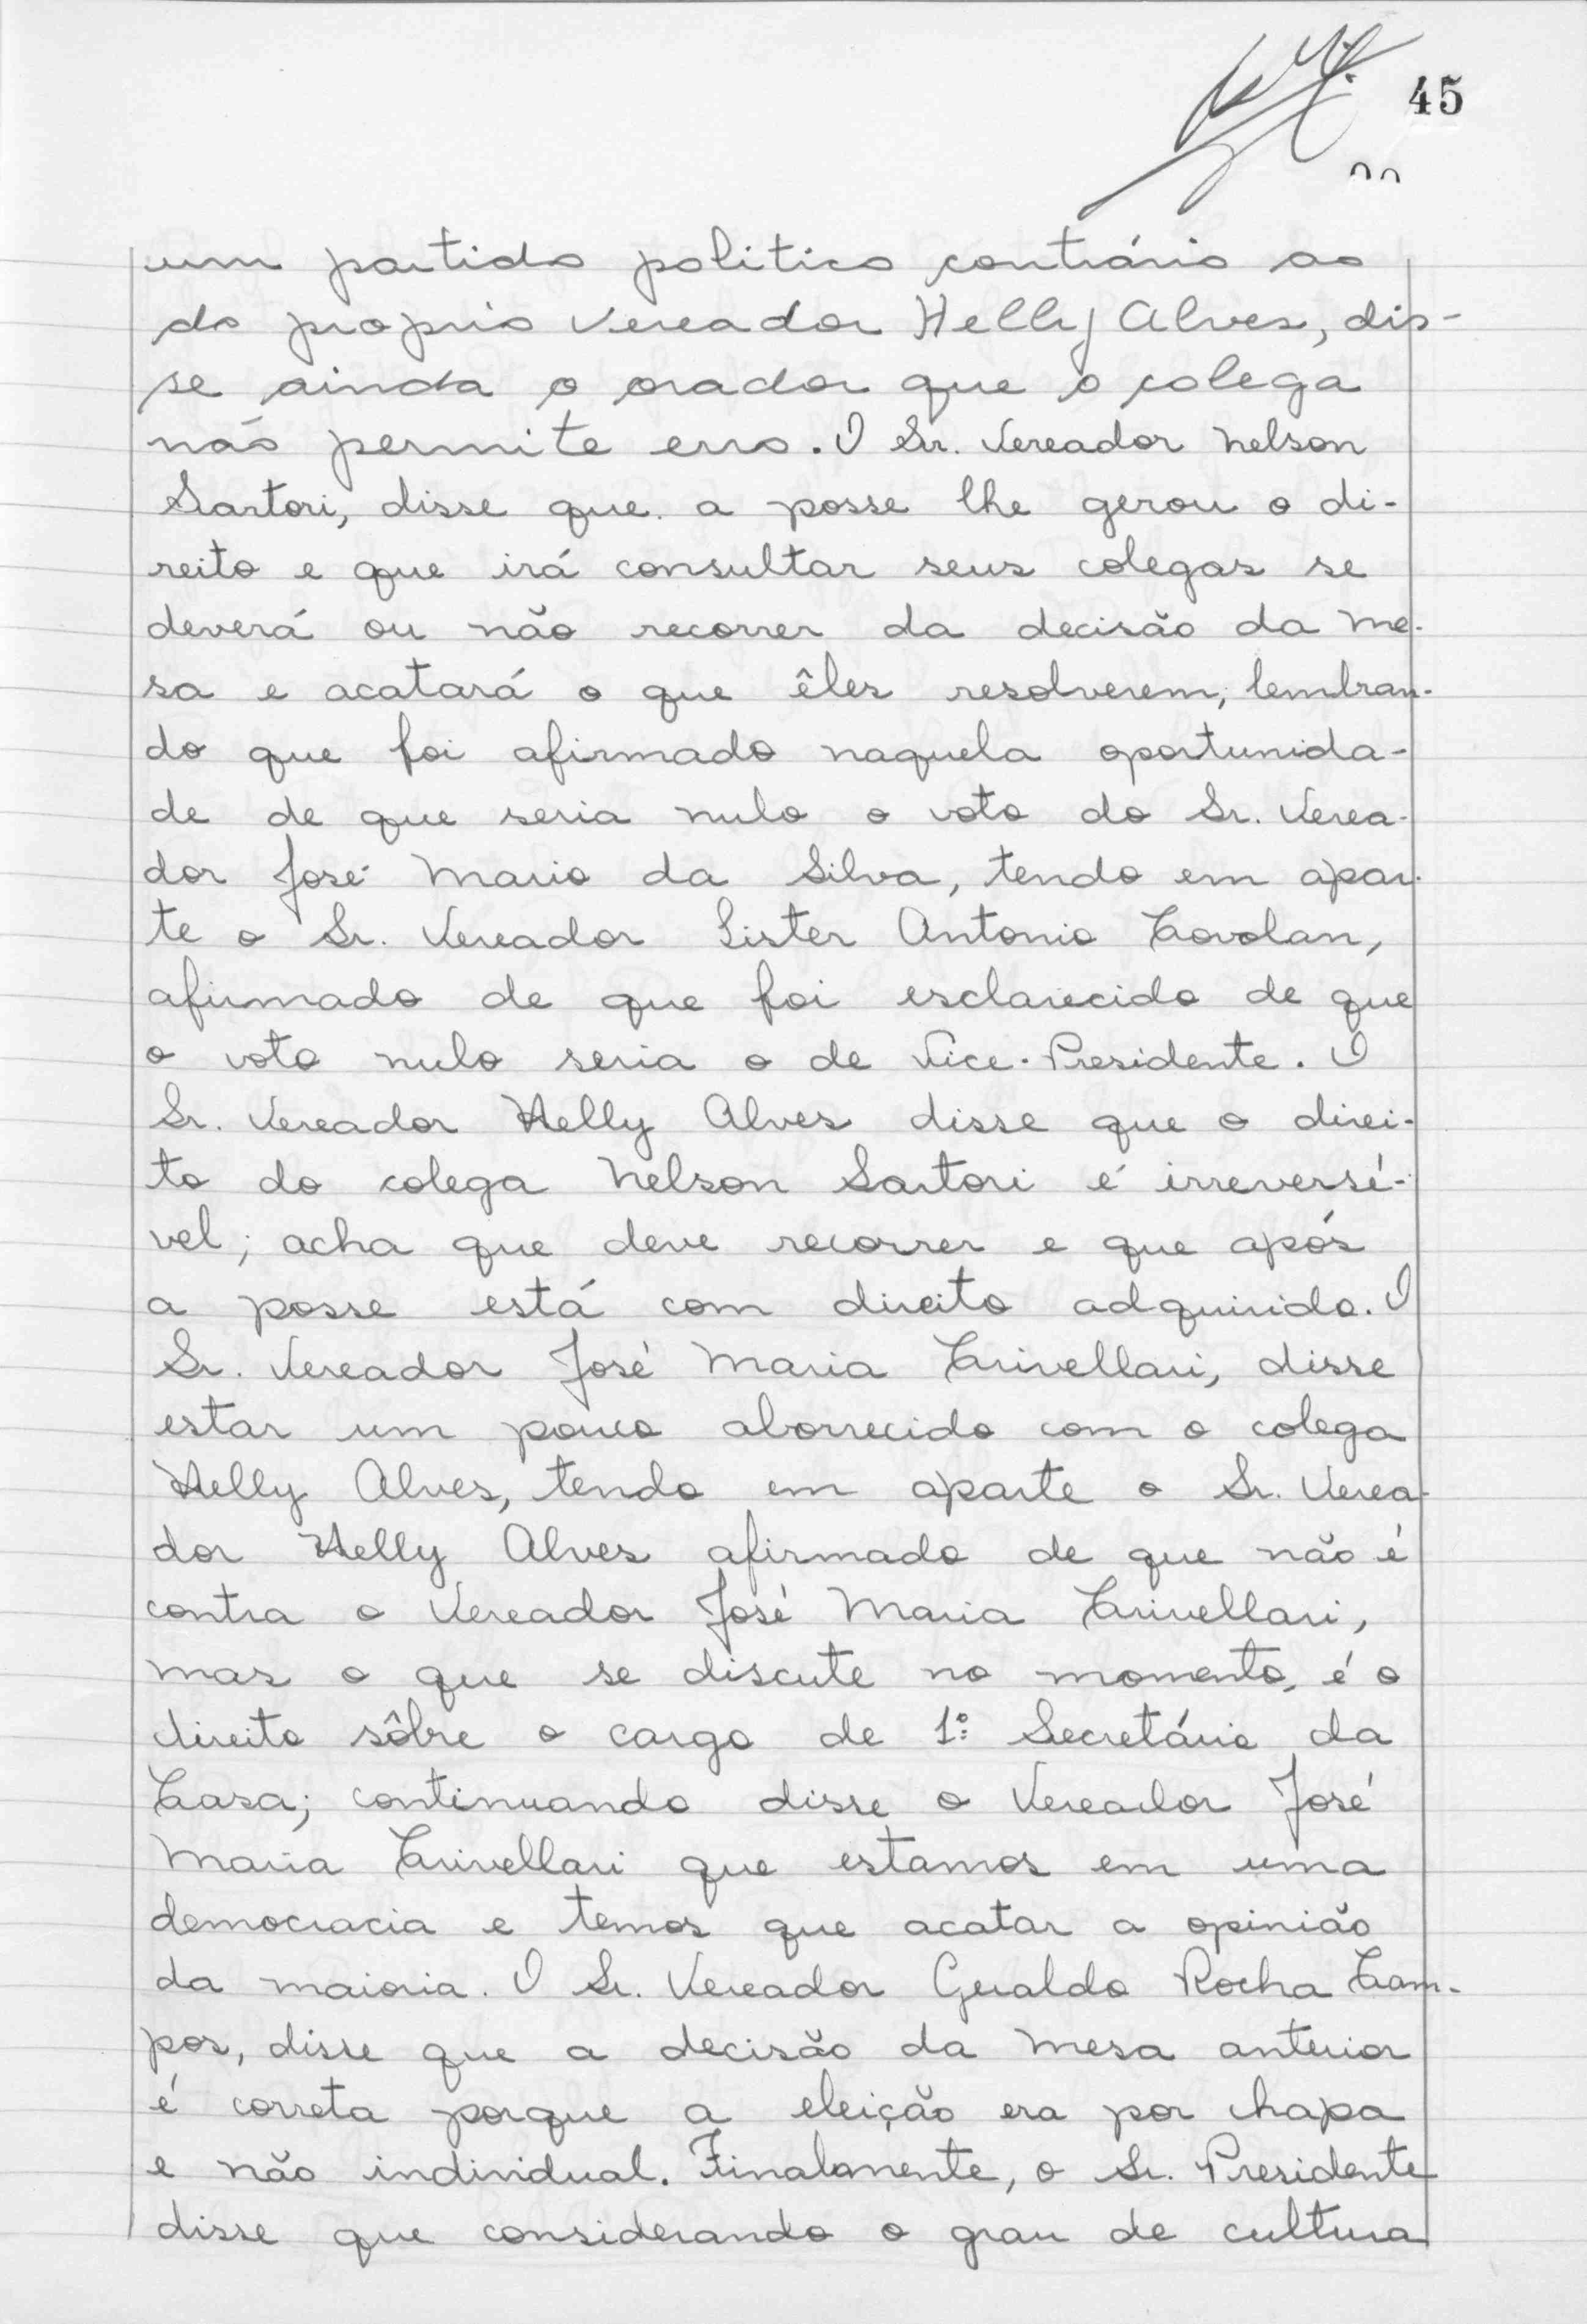 45
um partido politico contrário ao
do proprio Vereador Helly Alves, dis-
se ainda o orador que o colega
não permite erro. O Sr. Vereador Nelson
Sartori, disse que a posse lhe gerou o di-
reito e que irá consultar seus colegas se
deverá ou não recorrer da decisão da Me-
sa e acatará o que êles resolverem, lembran-
do que foi afirmado naquela oportunida-
de de que seria nulo o voto do Sr. Verea-
dor José Mario da Silva, tendo em apar-
te o Sr. Vereador Lister Antonio Covolan,
afirmado de que foi esclarecido de que
o voto nulo seria o de Vice-Presidente. O
Sr. Vereador Helly Alves disse que o direi-
to do colega Nelson Sartori é irreversí-
vel; acha que deve recorrer e que após
a posse está com direito adquirido. O
Sr. Vereador José Maria Crivellari, disse
estar um pouco aborrecido com o colega
Helly Alves, tendo em aparte o Sr. Verea-
dor Helly Alves afirmado de que não é
contra o Vereador José Maria Crivellari,
mas o que se discute no momento, é o
direito sôbre o cargo de 1º Secretário da
Casa; continuando disse o Vereador José
Maria Crivellari que estamos em uma
democracia e temos que acatar a opinião
da maioria. O Sr. Vereador Geraldo Rocha Cam-
pos, disse que a decisão da Mesa anterior
é correta porque a eleição era por chapa
e não individual. Finalmente, o Sr. Presidente
disse que considerando o grau de cultura